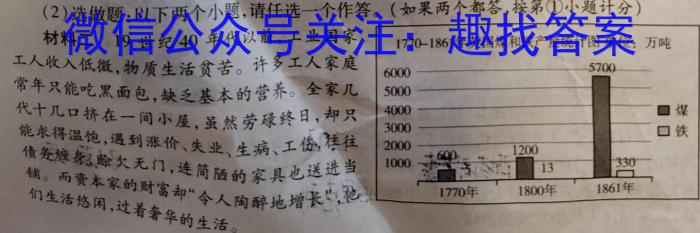 (2)选做题:以下两个小题,请任选一个作答。(如果两个都答,按第①小题计分)
微信公众号关注：趣找答案
材料 19世纪40年代以前,工业国家
工人收入低微,物质生活贫苦。许多工人家庭
常年只能吃黑面包,缺乏基本的营养。全家几
代十几口挤在一间小屋,虽然劳碌终日,却只
能求得温饱,遇到涨价、失业、生病、工伤,往往
债务缠身,赊欠无门,连简陋的家具也送进当
铺。而资本家的财富却“令人陶醉地增长”,他
们生活悠闲,过着奢华的生活。
1770-186 万吨
6000
5000
4000
3000
2000
1000
600
1200
13
5700
330
煤
铁
1770年
1800年
1861年